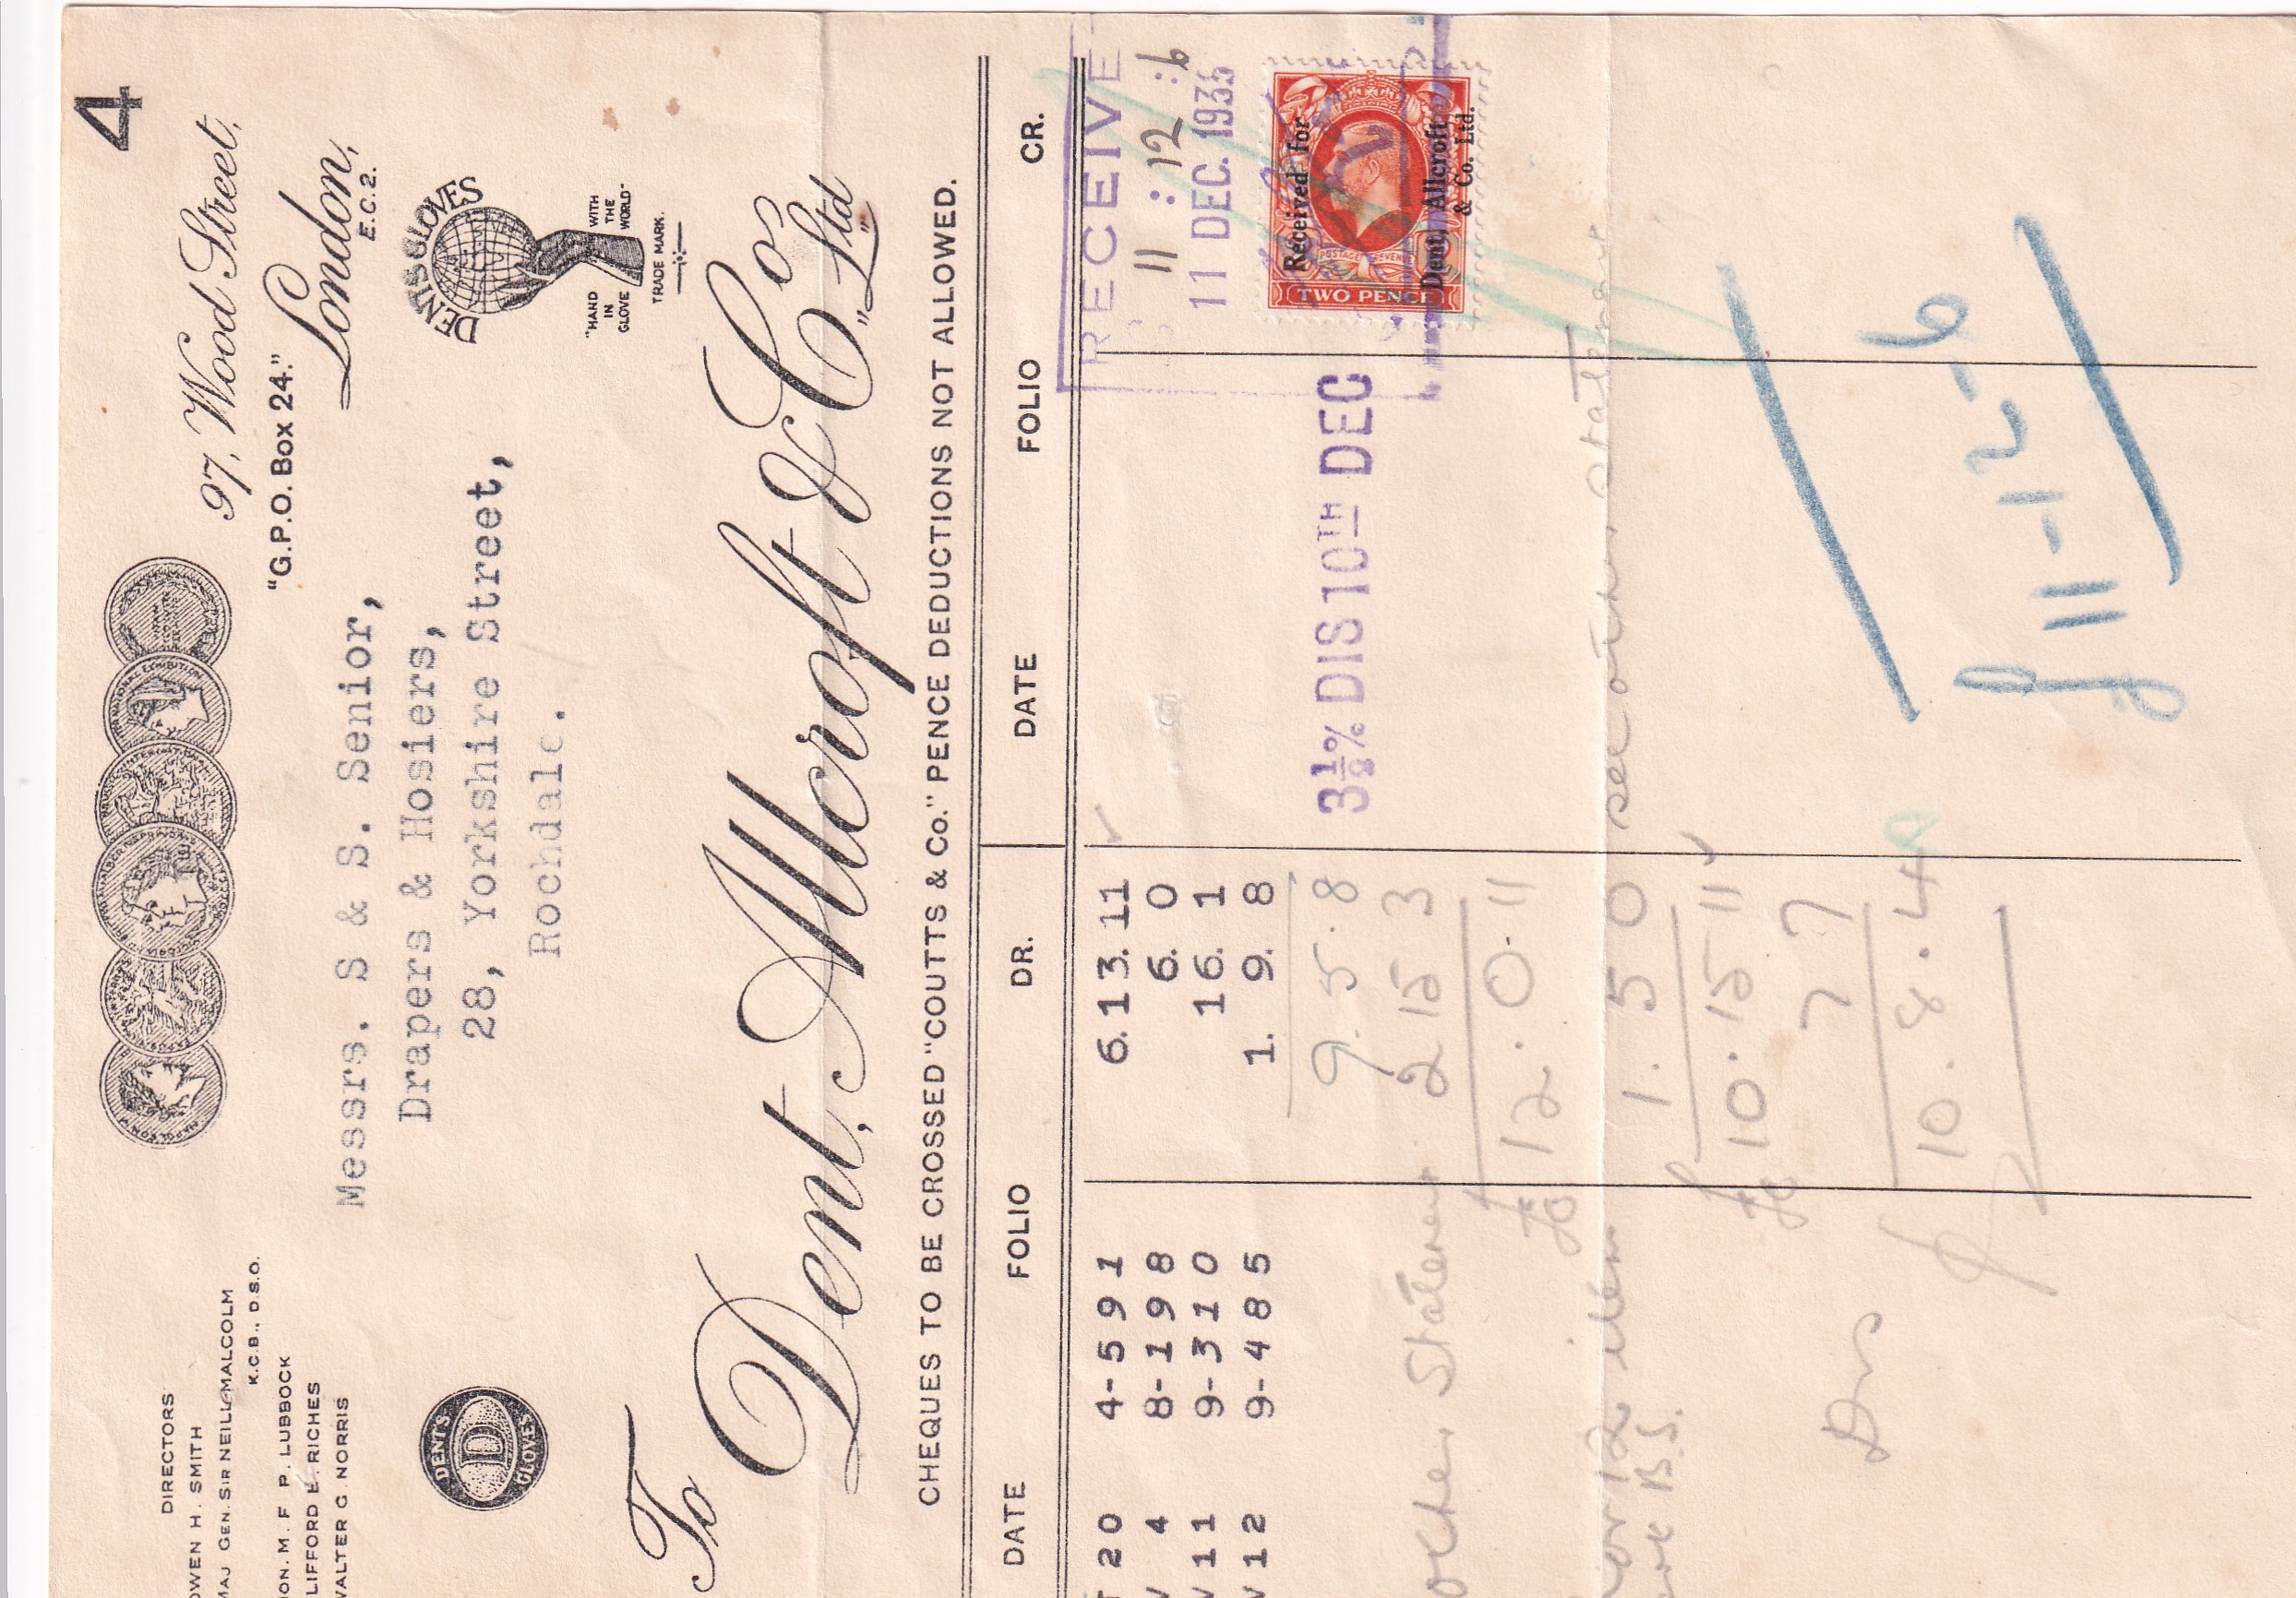 4
97, Wood Street,
"G.P.O. Box 24."
London,
E.C.2.
DIRECTORS
OWEN H. SMITH
MAJ GEN. SIR NEILL MALCOLM
K.C.B., D.S.O.
HON. M. F. P. LUBBOCK
CLIFFORD E. RICHES
WALTER G. NORRIS
Messrs. S & S. Senior,
Drapers & Hosiers,
28, Yorkshire Street,
Rochdale.
DENTS GLOVES
"HAND IN GLOVE
WITH THE WORLD"
TRADE MARK.
DENT'S
D
GLOVES
To Dent, Allcroft & Co. Ltd
CHEQUES TO BE CROSSED "COUTTS & Co." PENCE DEDUCTIONS NOT ALLOWED.
DATE FOLIO DR. DATE FOLIO CR.
T 20 4-591 6.13.11
V 4 8-198 6. 0
V 11 9-310 16. 1
V 12 9-485 1. 9. 8
RECEIVE
11 : 12 : 6
11 DEC. 1935
3½% DIS 10TH DEC
Received for
Dent, Allcroft
& Co. Ltd.
POSTAGE REVENUE
TWO PENCE
9. 5. 8
2 15 3
£ 12. 0. 11
1. 5 0 see other statement
£ 10. 15 11
7 7
£ 10. 8. 4
£11-12-6